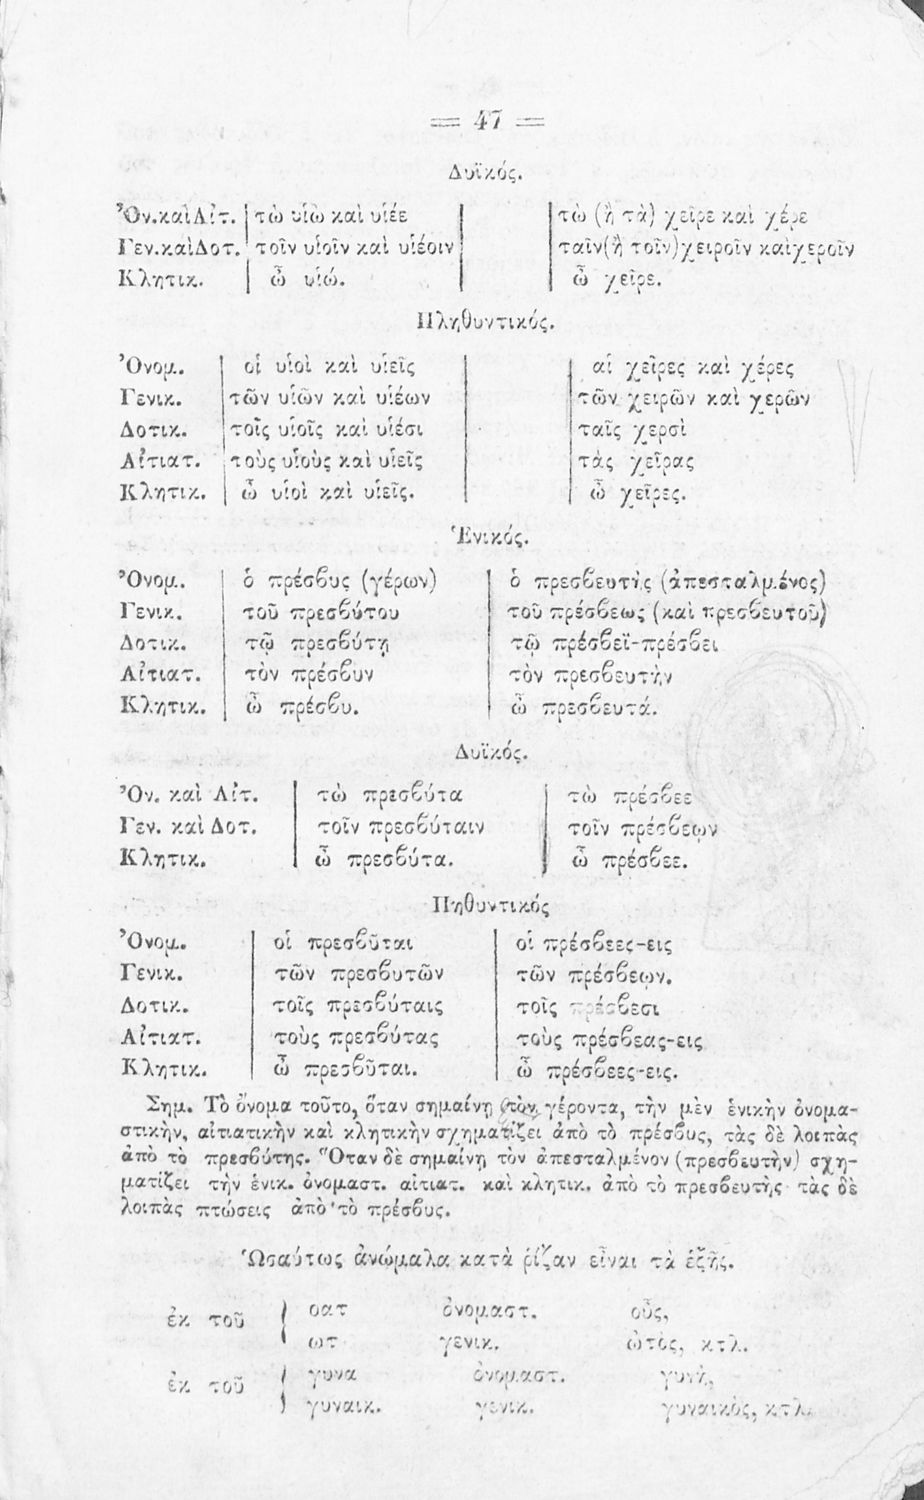 = 47 =
Δυϊκός.
Ὀν.καὶ Αἰτ. τὼ υἱὼ καὶ υἱέε τὼ (ἢ τὰ) χεῖρε καὶ χέρε
Γεν.καὶ Δοτ. τοῖν υἱοῖν καὶ υἱέοιν ταῖν (ἢ τοῖν) χειροῖν καὶ χεροῖν
Κλητικ. ὦ υἱώ. ὦ χεῖρε.
Πληθυντικός.
Ὀνομ. οἱ υἱοὶ καὶ υἱεῖς αἱ χεῖρες καὶ χέρες
Γενικ. τῶν υἱῶν καὶ υἱέων τῶν χειρῶν καὶ χερῶν
Δοτικ. τοῖς υἱοῖς καὶ υἱέσι ταῖς χερσὶ
Αἰτιατ. τοὺς υἱοὺς καὶ υἱεῖς τὰς χεῖρας
Κλητικ. ὦ υἱοὶ καὶ υἱεῖς. ὦ χεῖρες.
Ἑνικός.
Ὀνομ. ὁ πρέσβυς (γέρων) ὁ πρεσβευτὴς (ἀπεσταλμένος)
Γενικ. τοῦ πρεσβύτου τοῦ πρέσβεως (καὶ πρεσβευτοῦ)
Δοτικ. τῷ πρεσβύτῃ τῷ πρέσβεϊ-πρέσβει
Αἰτιατ. τὸν πρέσβυν τὸν πρεσβευτὴν
Κλητικ. ὦ πρέσβυ. ὦ πρεσβευτά.
Δυϊκός.
Ὀν. καὶ Αἰτ. τὼ πρεσβύτα τὼ πρέσβεε
Γεν. καὶ Δοτ. τοῖν πρεσβύταιν τοῖν πρέσβεῳν
Κλητικ. ὦ πρεσβύτα. ὦ πρέσβεε.
Πηθυντικός
Ὀνομ. οἱ πρεσβῦται οἱ πρέσβεες-εις
Γενικ. τῶν πρεσβυτῶν τῶν πρέσβεων.
Δοτικ. τοῖς πρεσβύταις τοῖς πρέσβεσι
Αἰτιατ. τοὺς πρεσβύτας τοὺς πρέσβεας-εις
Κλητικ. ὦ πρεσβῦται. ὦ πρέσβεες-εις.
Σημ. Τὸ ὄνομα τοῦτο, ὅταν σημαίνῃ τὸν γέροντα, τὴν μὲν ἑνικὴν ὀνομα-
στικὴν, αἰτιατικὴν καὶ κλητικὴν σχηματίζει ἀπὸ τὸ πρέσβυς, τὰς δὲ λοιπὰς
ἀπὸ τὸ πρεσβύτης. Ὅταν δὲ σημαίνῃ τὸν ἀπεσταλμένον (πρεσβευτὴν) σχη-
ματίζει τὴν ἑνικ. ὀνομαστ. αἰτιατ. καὶ κλητικ. ἀπὸ τὸ πρεσβευτὴς τὰς δὲ
λοιπὰς πτώσεις ἀπὸ τὸ πρέσβυς.
Ὡσαύτως ἀνώμαλα κατὰ ῥίζαν εἶναι τὰ ἑξῆς.
ἐκ τοῦ { οατ ὀνομαστ. οὖς,
ωτ γενικ. ὠτὸς, κτλ.
ἐκ τοῦ { γυνα ὀνομαστ. γυνὴ,
γυναικ. γενικ. γυναικὸς, κτλ.